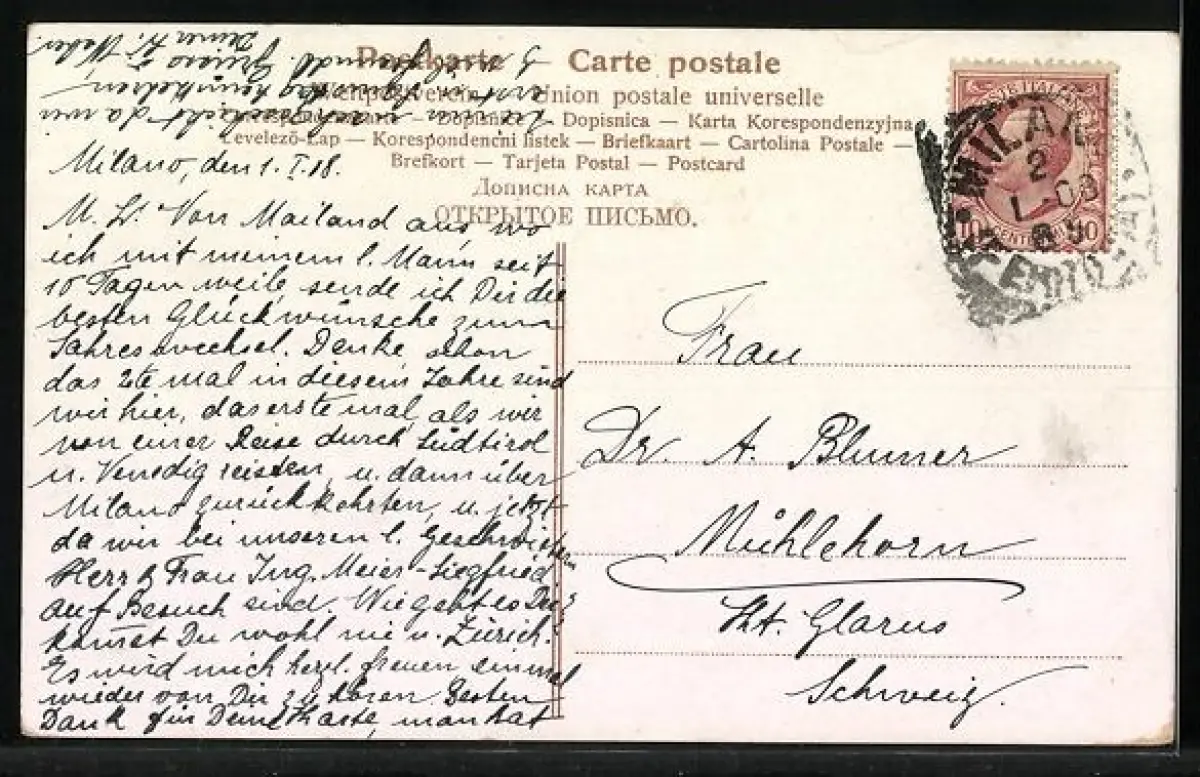 Postkarte — Carte postale
Weltpostverein — Union postale universelle
Dopisnice — Dopisnica — Karta Korespondenzyjna
Levelező-Lap — Korespondenční listek — Briefkaart — Cartolina Postale —
Brefkort — Tarjeta Postal — Postcard
Дописна карта
ОТКРЫТОЕ ПИСЬМО.
MILANO
2
1-08
10 CENTESIMI 10
Milano, den 1. I. 18.
M. L. Von Mailand aus wo
ich mit meinem l. Mann seit
10 Tagen weile, sende ich Dir die
besten Glückwünsche zum
Jahreswechsel. Denke schon
das 2te mal in diesem Jahre sind
wir hier, das erste mal, als wir
von einer Reise durch Südtirol
u. Venedig reisten, u. dann über
Milano zurückkehrten, u. jetzt
da wir bei unseren l. Geschwistern
Herr & Frau Ing. Meier-Siegfried
auf Besuch sind. Wie geht es Dir?
kamst Du wohl nie n. Zürich.
Es wird mich herzl. freuen einmal
wieder von Dir zu hören. Besten
Dank für Deine Karte, man hat
Frau
Dr. A. Blumer
Mühlehorn
Kt. Glarus
Schweiz.